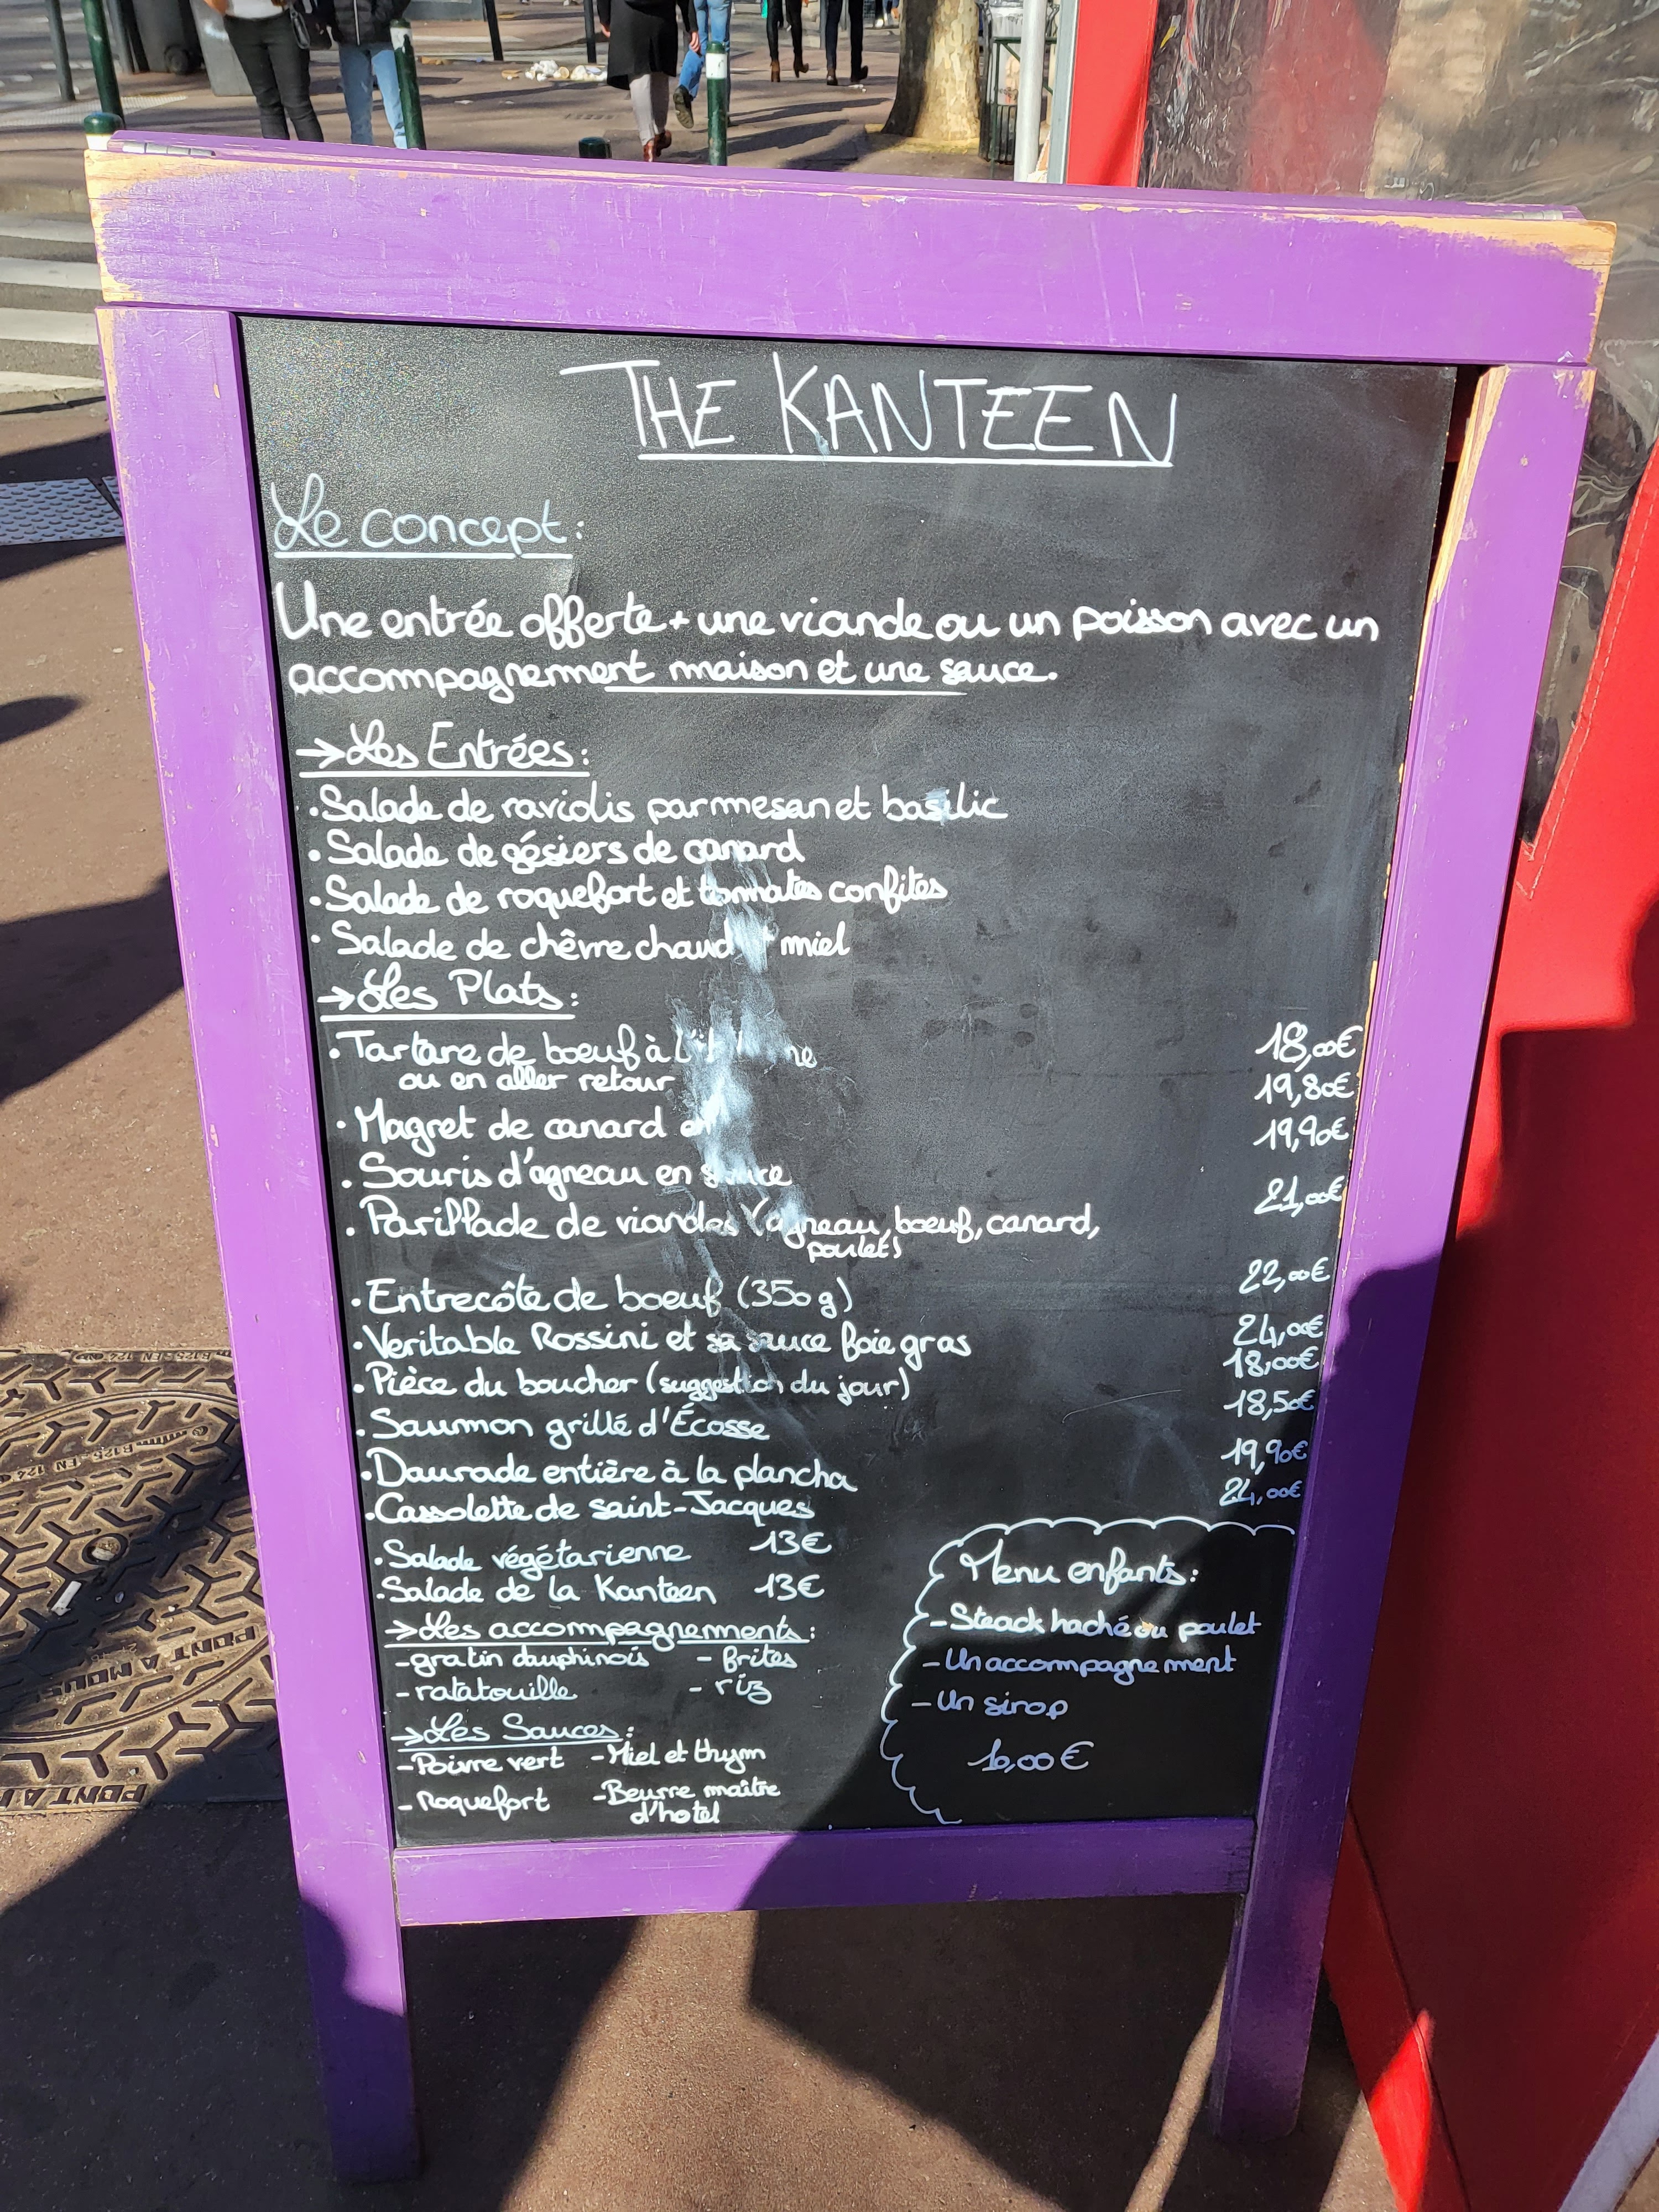 THE KANTEEN
Le concept:
Une entrée offerte + une viande ou un poisson avec un
accompagnement maison et une sauce.
→Les Entrées:
•Salade de raviolis parmesan et basilic
•Salade de gésiers de canard
•Salade de roquefort et tomates confites
•Salade de chêvre chaud + miel
→Les Plats:
•Tartare de boeuf à 18,00€
ou en aller retour 19,80€
•Magret de canard 19,90€
•Souris d'agneau en sauce 21,00€
•Parillade de viandes (agneau, boeuf, canard,
poulet) 22,00€
•Entrecôte de boeuf (350g) 24,00€
•Veritable Rossini et sa sauce foie gras 18,00€
•Pièce du boucher (suggestion du jour) 18,50€
•Saumon grillé d'Écosse 19,90€
•Daurade entière à la plancha 24,00€
•Cassolette de saint-Jacques
•Salade végétarienne 13€
•Salade de la Kanteen 13€
→Les accompagnements:
-gratin dauphinois - frites
-ratatouille - riz
→Les Sauces:
-Poivre vert -Miel et thym
-Roquefort -Beurre maître
d'hotel
Menu enfants:
-Steack haché ou poulet
-Un accompagnement
-Un sirop
10,00€
PONT A MOUSS
B125-EN 124
PONT A